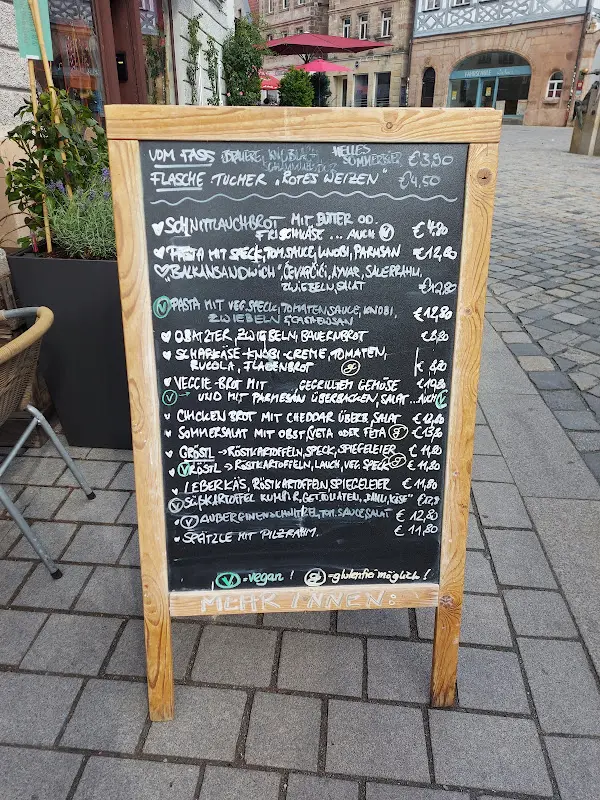 VOM FASS HELLES SOMMERBIER € 3,90
FLASCHE TUCHER „ROTES WEIZEN" € 4,50
SCHNITTLAUCHBROT MIT BUTTER OD.
FRISCHKÄSE ... AUCH V € 4,80
PASTA MIT SPECK, TOM.SAUCE, KNOBI, PARMSAN € 12,80
"BALKANSANDWICH" CEVAPCICI, AYVAR, SAUERRAHM,
ZWIEBELN, SALAT € 12,80
V PASTA MIT VEG. SPECK, TOMATENSAUCE, KNOBI, € 12,80
ZWIEBELN &
OBATZTER, ZWIEBELN, BAUERNBROT € 8,80
SCHAFKÄSE-KNOBI-CREME, TOMATEN,
RUCOLA, FLADENBROT gf € 8,80
VEGGIE-BROT MIT GEGRILLTEM GEMÜSE
V → UND MIT PARMESAN ÜBERBACKEN, SALAT... AUCH V
CHICKEN BROT MIT CHEDDAR ÜBERB, SALAT € 12,80
SOMMERSALAT MIT OBST, VETA ODER FETA gf € 13,80
GRÖSTL → RÖSTKARTOFFELN, SPECK, SPIEGELEIER € 11,80
V RÖSTL → RÖSTKARTOFFELN, LAUCH, VEG. SPECK gf € 11,80
LEBERKÄS, RÖSTKARTOFFELN, SPIEGELEIER € 11,80
V SÜßKARTOFFEL KUMPIR, GET. TOMATEN,
V AUBERGINENSCHNITZEL, TOM.SAUCE, SALAT € 12,80
SPÄTZLE MIT PILZRAHM. € 11,80
V - vegan! gf - glutenfrei möglich!
MICHR INNEN: